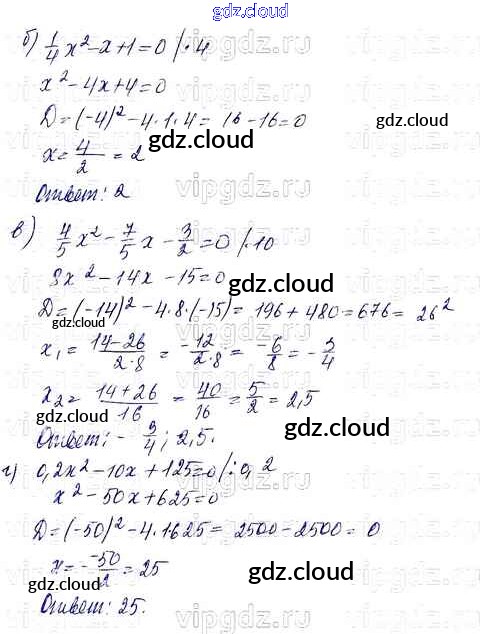 gdz.cloud
б) 1/4 x² - x + 1 = 0 | · 4
x² - 4x + 4 = 0
D = (-4)² - 4 · 1 · 4 = 16 - 16 = 0
x = 4/2 = 2
Ответ: 2
в) 4/5 x² - 7/5 x - 3/2 = 0 | · 10
8x² - 14x - 15 = 0
D = (-14)² - 4 · 8 · (-15) = 196 + 480 = 676 = 26²
x₁ = (14 - 26)/(2 · 8) = -12/(2 · 8) = -6/8 = -3/4
x₂ = (14 + 26)/16 = 40/16 = 5/2 = 2,5
Ответ: -3/4; 2,5.
г) 0,2x² - 10x + 125 = 0 | : 0,2
x² - 50x + 625 = 0
D = (-50)² - 4 · 1625 = 2500 - 2500 = 0
x = - -50/2 = 25
Ответ: 25.
gdz.cloud
gdz.cloud
gdz.cloud
gdz.cloud
gdz.cloud
gdz.cloud
gdz.cloud
vipgdz.ru
vipgdz.ru
vipgdz.ru
vipgdz.ru
vipgdz.ru
vipgdz.ru